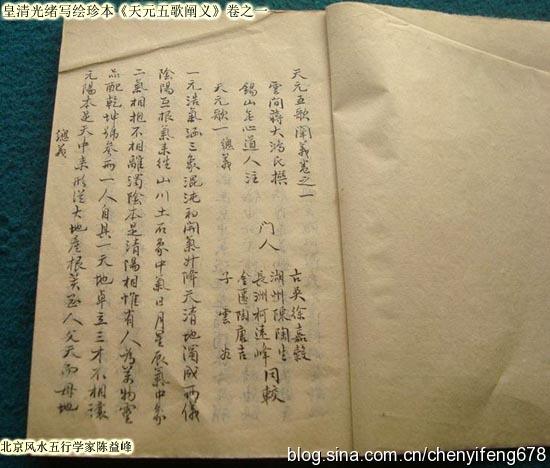 皇清光绪写绘珍本《天元五歌阐义》卷之一
天元五歌闡義卷之一
雲間蔣大鴻氏撰
錫山无心道人注
门人
古吳徐嘉穀
湖州陳陶生
長洲柯遠峰 同較
金匱陶康吉
子雲
天元歌一 總義
一元浩氣涵三象混沌初開氣升降天清地濁成兩儀
陰陽互根氣來往山川土石象中氣日月星辰氣中象
二氣相抱不相離濁陰本是清陽相惟有人為萬物靈
品配乾坤號參兩一人自具一天地卓立三才不相讓
元陽本是天中來形從大地產根荄人父天而母地
總義
北京风水五行学家陈益峰
blog.sina.com.cn/chenyifeng678